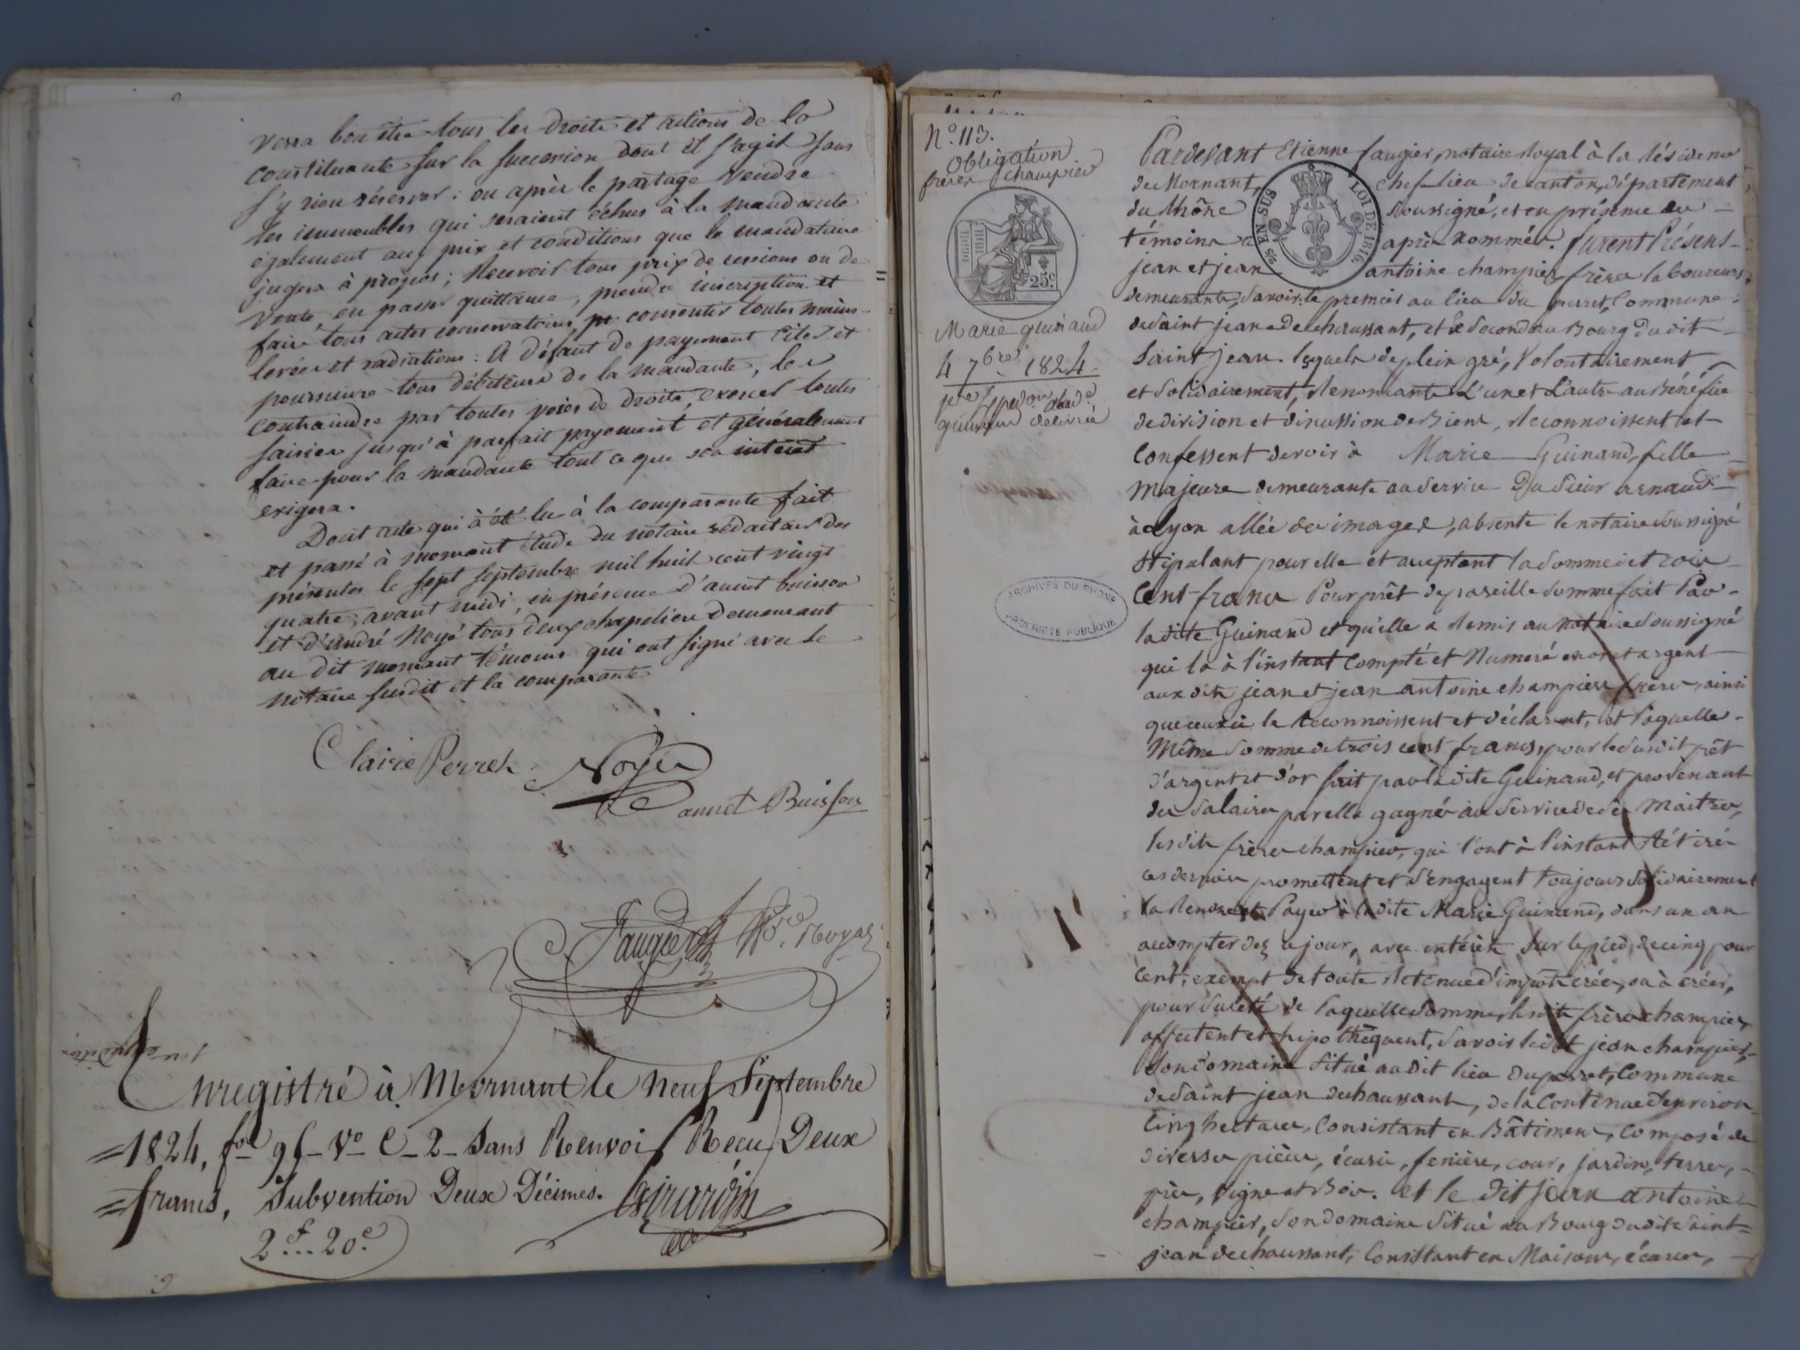 verra bon être tous les droits et actions de la
constituante sur la succession dont il s'agit sans
s'y rien réserver : ou après le partage vendre
les immeubles qui seraient échus à la mandante
également aux prix et conditions que le mandataire
jugera à propos ; recevoir tous prix de cessions ou de
vente, en passer quittance, prendre inscription et
faire tous actes conservatoires, consentir toutes mains-
levées et radiations : A défaut de payement citer et
poursuivre tous débiteurs de la mandante, les
contraindre par toutes voies de droite, exercer toutes
saisies jusqu'à parfait payement et généralement
faire pour la mandante tout ce que son intérêt
exigera.
Dont acte qui à été lu à la comparante fait
et passé à mornant étude du notaire rédacteur des
présentes le sept septembre mil huit cent vingt
quatre, avant midi, en présence d'annet buisson
et d'andré Noyé tous deux chapeliers demeurant
au dit mornant témoins qui ont signé avec le
notaire susdit et la comparante
Claire Perret Noyé
annet Buisson
Faugier Nre Royal
Enregistré à Mornant le neuf Septembre
=1824, fo 95 Vo C 2 Sans Renvoi Recu Deux
=francs, Subvention Deux Décimes. Girardin
2f...20c
No 113.
Obligation
frères champier
25c.
Marie guinand
4 7bre 1824
guinand délivrée
EN SUS LOI DE 1816.
ARCHIVES DU RHÔNE
PROPRIÉTÉ PUBLIQUE
Pardevant Etienne faugier, notaire Royal à la Résidence
de Mornant, chef-lieu de canton, département
du Rhône soussigné, et en présence des
témoins après nommés. furent Présens
jean et jean antoine champier frères laboureurs
demeurants, savoir le premier au lieu du perret, Commune
de saint jean de chaussant, et le second au Bourg du dit
saint jean lesquels de plein gré, Volontairement
et solidairement, Renonçants L'un et L'autre au Bénéfice
de division et discussion de Biens, Reconnoissent et
Confessent devoir à Marie Guinand, fille
Majeure demeurante au service du sieur arnaud
à Lyon allée des images, absente le notaire soussigné
stipulant pour elle et acceptant la somme de trois
Cent francs Pour prêt de pareille somme fait Par
la dite Guinand et qu'elle a Remis au notaire soussigné
qui la à l'instant Compté et Numeré en or et argent
aux dits jean et jean antoine champier frères, ainsi
que ceux ci le Reconnoissent et déclarent, et Laquelle
Même somme de trois cent francs, pour le susdit prêt
d'argent et d'or fait par la dite Guinand, et provenant
des salaires par elle gagnés au service de ses maitres,
les dits frères champier, qui l'ont à l'instant Rétiré
ces derniers promettent et s'engagent toujours solidairement
la Rendre et Payer à la dite Marie Guinand, dans un an
a compter de ce jour, avec intérêts sur le pied de cinq pour
Cent, exempt de toute Retenue d'impots créés, ou à créer,
pour sureté de Laquelle somme les dits frères champier
affectent et hipothèquent, savoir le dit jean champier,
son domaine situé au dit lieu du perret, Commune
de saint jean de chaussant, de la Contenue d'environ
Cinq hectares, Consistant en Bâtimens, Composés de
diverses pièces, écurie, fenière, cour, jardin, terres,
prés, Vigne et Bois. et le dit jean antoine
champier, son domaine situé au Bourg du dit saint
jean de chaussant, Consistant en Maisons, écuries,